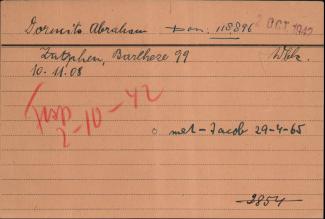 Dormits Abraham Don. 118896 2 OCT 1942
Zutphen, Barlheze 99 Wbz.
10.11.08
Trsp
2-10-42
met-Jacob 29-4-65
2854